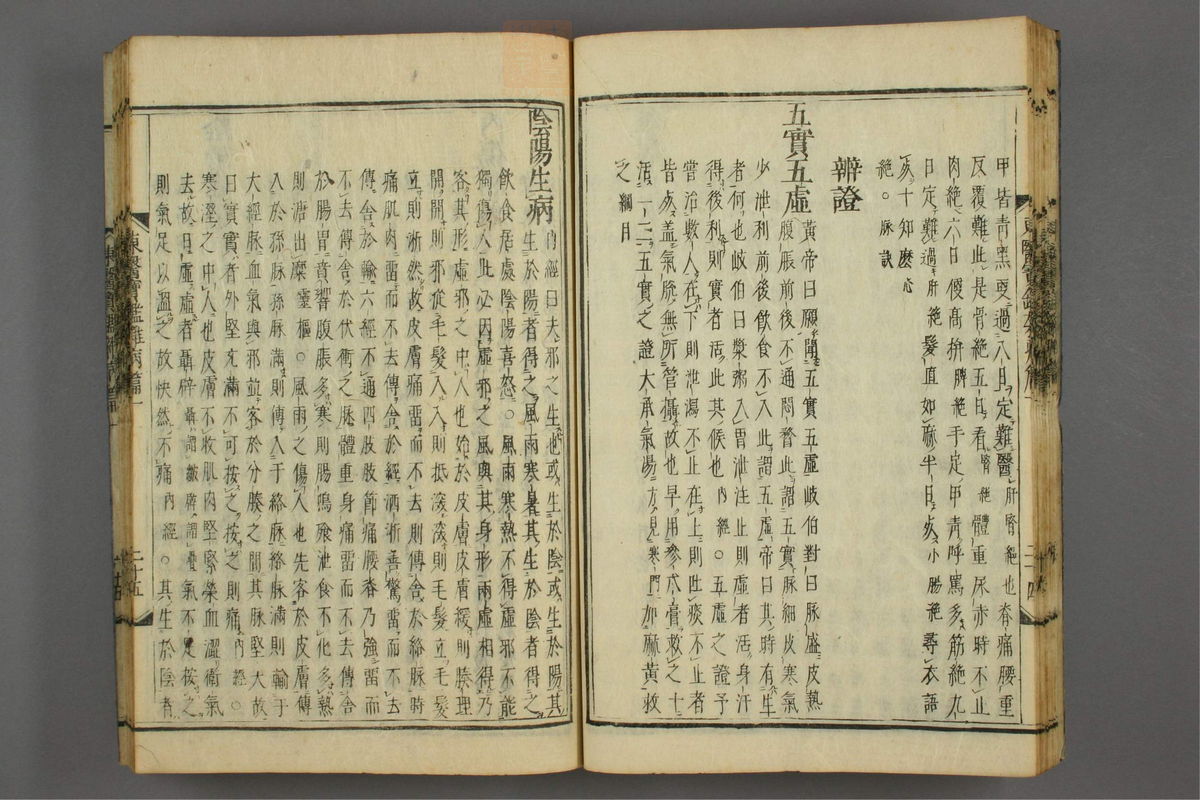 甲皆青黑更過八日定難醫肝腎絶也脊痛腰重
反覆難此是骨絶五日看腎絶體重尿赤時不止
肉絶六日便高拚脾絶手足甲青呼罵多筋絶九
日定難過肝絶髮直如麻半日死小腸絶尋衣語
死十知麽心
絶。脉訣
辨證
五實五虛
黃帝曰願聞五實五虛歧伯對曰脉盛皮熱
腹脹前後不通悶瞀此謂五實脉細皮寒氣
少泄利前後飮食不入此謂五虛帝曰其時有生
者何也歧伯曰漿粥入胃泄注止則虛者活身汗
得後利則實者活此其候也內經。五虛之證予
嘗治數人在下則泄瀉不止在上則吐痰不止者
皆死盖氣脫無所管攝故也早用參朮膏救之十
活一二五實之證大承氣湯方見寒門加麻黃救
之綱目
陰陽生病
內經曰夫邪之生也或生於陰或生於陽其
生於陽者得之風雨寒暑其生於陰者得之
飮食居處陰陽喜怒。風雨寒熱不得虛邪不能
獨傷人此必因虛邪之風與其身形兩虛相得乃
客其形虛邪之中人也始於皮膚皮膚緩則腠理
開開則邪從毛髮入入則抵深深則毛髮立毛髮
立則淅然故皮膚痛留而不去則傳舍於絡脉時
痛肌肉留而不去傳舍於經洒淅善驚留而不去
傳舍於輸六經不通四肢肢節痛腰脊乃強留而
不去傳舍於伏衝之脉體重身痛留而不去傳舍
於腸胃音響腹脹多寒則腸鳴飱泄食不化多熱
則溏出糜靈樞。風雨之傷人也先客於皮膚傳
入於孫脉孫脉滿則傳入于絡脉絡脉滿則輸于
大經脉血氣與邪並客於分腠之間其脉堅大故
曰實實者外堅充滿不可按之按之則痛內經。
寒溼之中人也皮膚不收肌肉堅緊榮血澀衛氣
去故曰虛虛者聶辟聶謂皺辟謂疊氣不足按之
則氣足以溫之故快然不痛內經。其生於陰者